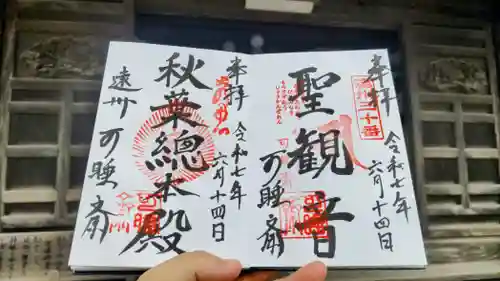 奉拝
令和七年
六月十四日
聖観音
可睡斎
奉拝
令和七年
六月十四日
秋葉總本殿
遠州
可睡斎